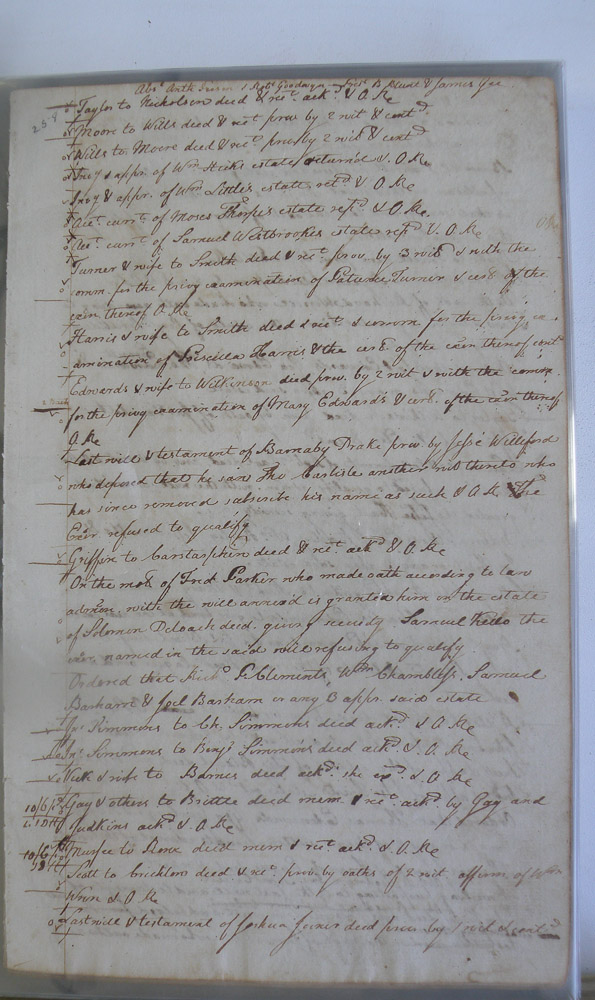 Taylor to Nicholson deed & rect ackd & O. Re
Moore to Wills deed & rect prov. by 2 wit & contd
Wills to Moore deed & rect prov. by 2 wit & contd
Invy & appr. of Wm Hicks estate returned & O Re
Invy & appr. of Wm Little's estate retd & O Re
Acct currt. of Moses Tharpe's estate retd & O Re
Acct. currt. of Samuel Westbrook's estate retd & O. Re
Turner & wife to Smith deed & rect. prov. by 3 wits & with the
comm. for the privy examination of Patience Turner & cert of the
exon thereof O. Re
Harris & wife to Smith deed & rect & comm for the privy ex
amination of Priscilla Harris & the cert. of the exon thereof contd
Edwards & wife to Wilkinson deed prov. by 2 wit & with the comm
for the privy examination of Mary Edwards & cert. of the exon thereof
O. Re
Last will & testament of Barnaby Drake prov. by Jesse Williford
who deposed that he saw Tho Carlisle another wit thereto who
has since removed subscribe his name as such & O Re The
Exor refused to qualify
Griffin to deed & rect ackd & O. Re
On the mot of Fred Parker who made oath according to law
admon. with the will annexed is granted him on the estate
of Solomon Deloach deced. giving security Samuel Kello the
exor named in the said will refusing to qualify
Ordered that Richd Clements, Wm Chambliss, Samuel
Barham & Joel Barham or any 3 appr. said estate
Jno Simmons to Ch. Simmons deed ackd. & O Re
Jno Simmons to Benja Simmons deed ackd & O. Re
& wife to Barnes deed ackd. she exd. & O Re
Gay & others to Brittle deed mem & rect. ackd. by Gay and
Judkins ackd & O. Re
to deed mem & rect ackd. & O Re
Scott to Crichlow deed & rect. prov. by oaths of 2 wit affirm. of Wm
& O Re
Last will & testament of Joshua Joiner deed prov. by 1 wit & contd